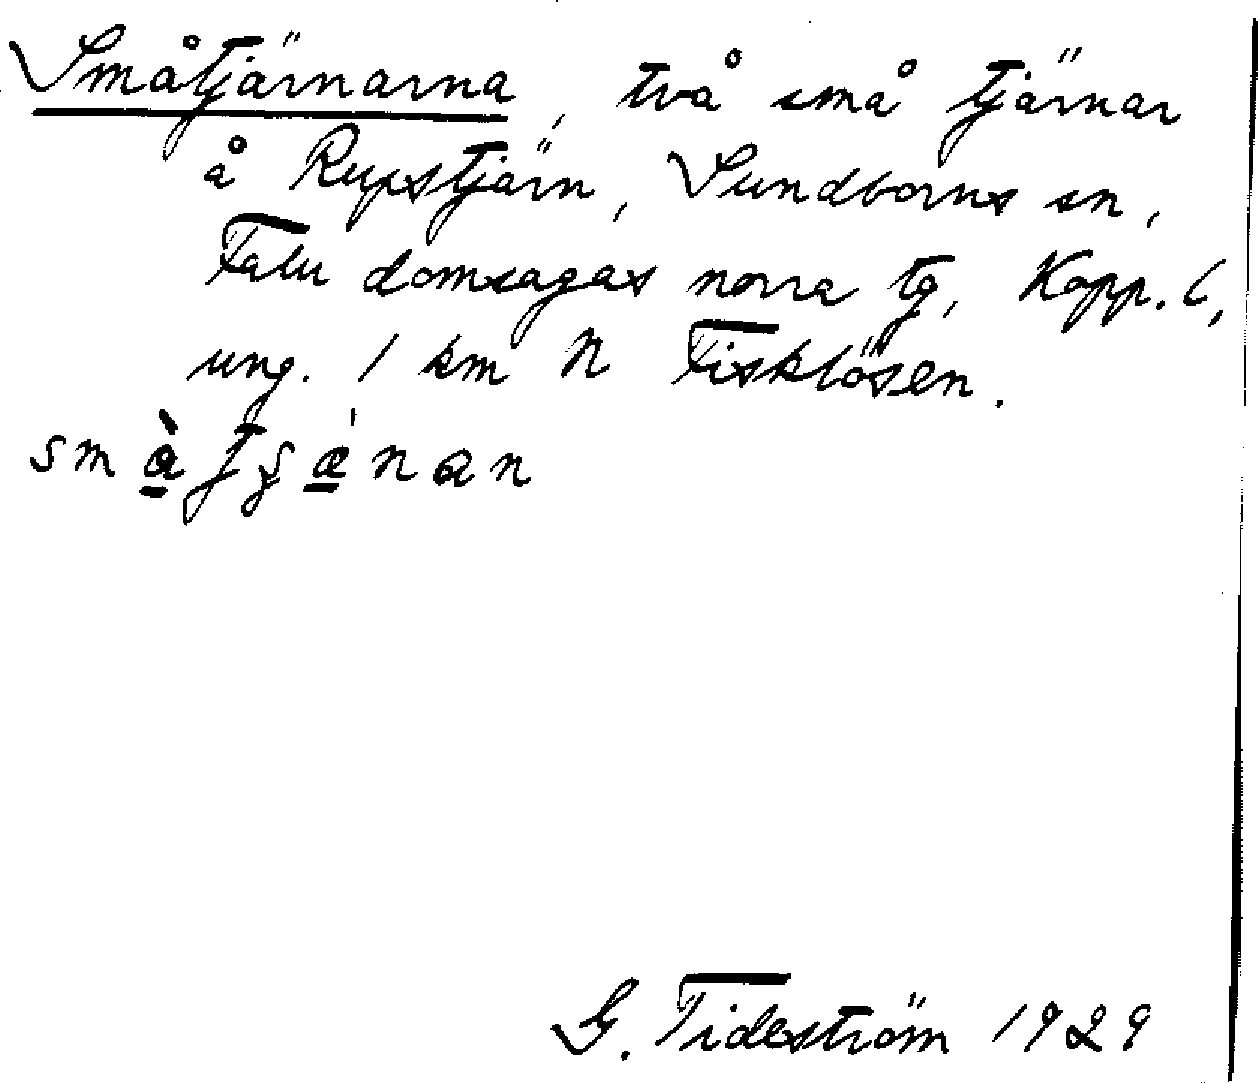 Småtjärnarna, två små tjärnar
å Rupstjärn, Sundborns sn,
Falu domsagas norra tg, Kopp. l,
ung. 1 km N Fisklösen.
G. Tideström 1929